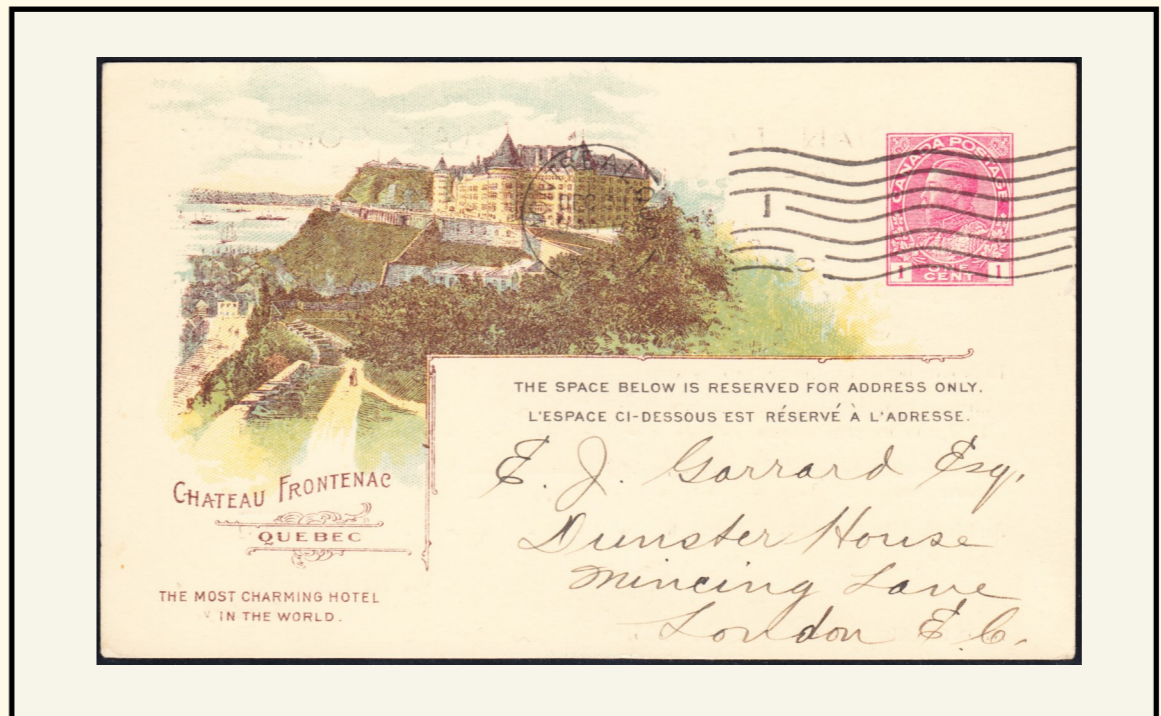 CANADA POSTAGE
1 ONE CENT 1
THE SPACE BELOW IS RESERVED FOR ADDRESS ONLY.
L'ESPACE CI-DESSOUS EST RÉSERVÉ À L'ADRESSE.
E. J. Garrard Esq.
Dunster House
Mincing Lane
London E.C.
CHATEAU FRONTENAC
QUEBEC
THE MOST CHARMING HOTEL
IN THE WORLD.